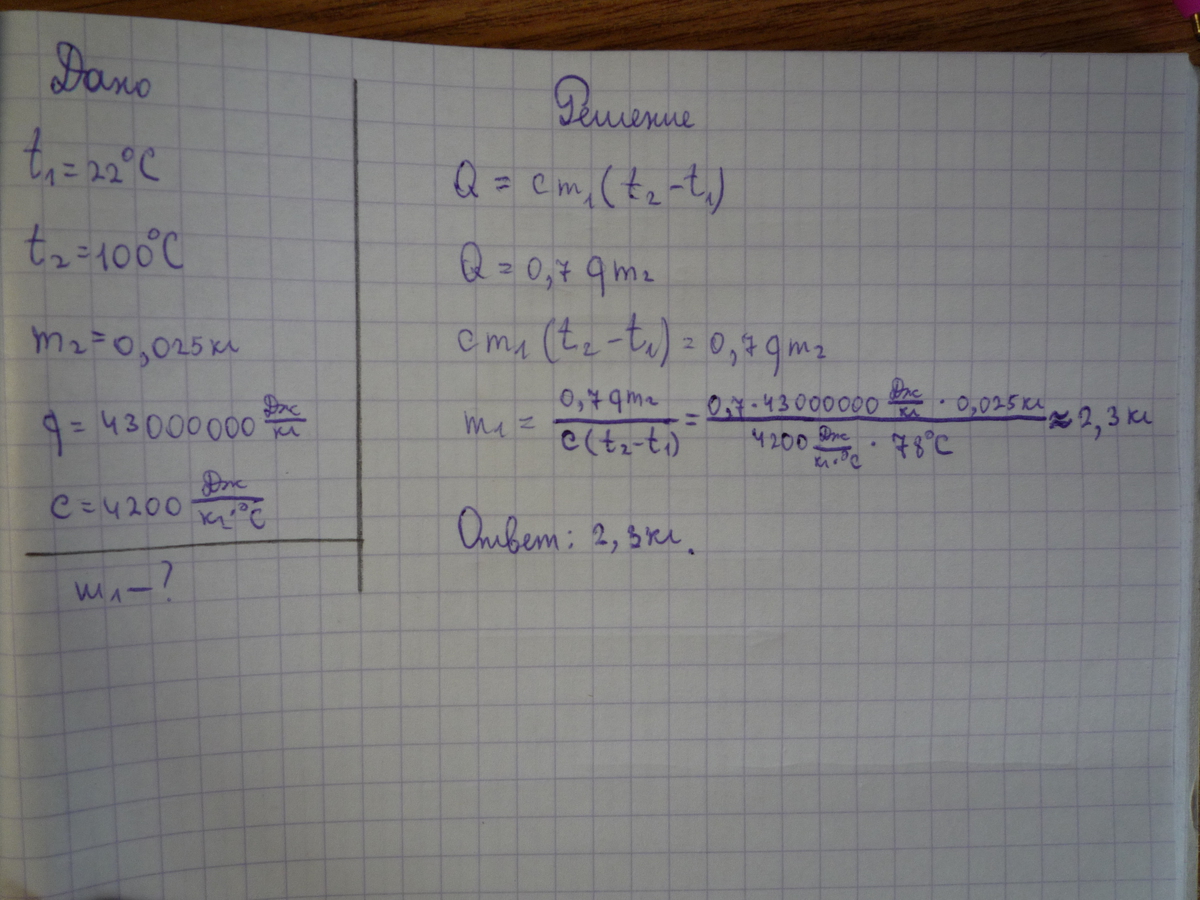 Дано
t₁=22°C
t₂=100°C
m₂=0,025кг
q=43000000 Дж/кг
c=4200 Дж/кг·°C
m₁-?
Решение
Q = cm₁(t₂-t₁)
Q=0,7qm₂
cm₁(t₂-t₁)=0,7qm₂
m₁ = 0,7qm₂/c(t₂-t₁) = 0,7·43000000 Дж/кг · 0,025кг/4200 Дж/кг·°C · 78°C ≈ 2,3кг
Ответ: 2,3кг.